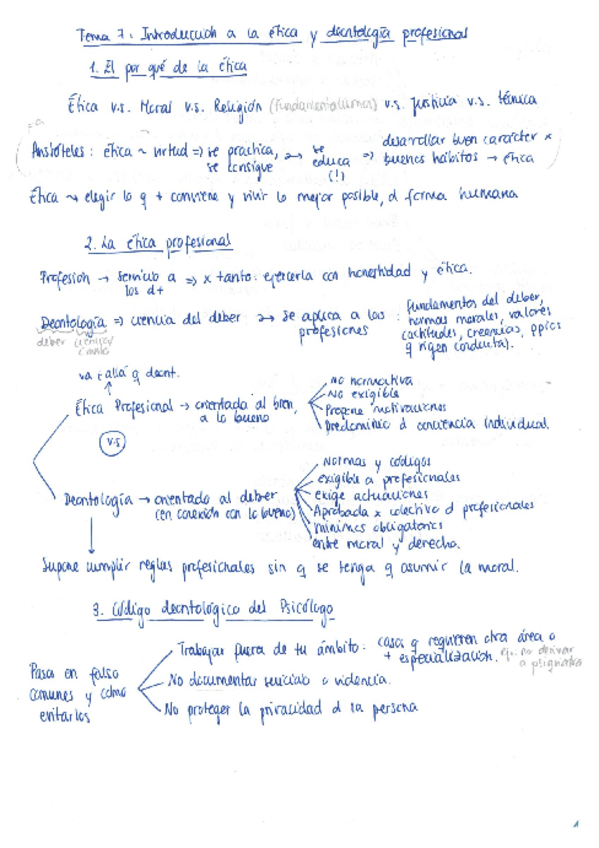 Tema 7: Introducción a la ética y deontología profesional
1. El por qué de la ética
Ética v.s. Moral v.s. Religión (fundamentalismos) v.s. Justicia v.s. técnica
Aristóteles: ética ~ virtud => se practica, se consigue → se educa (!) => desarrollar buen carácter x buenos hábitos → ética
Ética → elegir lo q + conviene y vivir lo mejor posible, d forma humana
2. La ética profesional
Profesión → servicio a los d+ => x tanto: ejercerla con honestidad y ética.
Deontología => ciencia del deber → se aplica a las profesiones : fundamentos del deber,
normas morales, valores
(actitudes, creencias, ppios
q rigen conducta).
deber
va + allá q deont.
Ética Profesional → orientada al bien, a lo bueno
No normativa
No exigible
Propone motivaciones
Predominio d conciencia individual.
v.s
Deontología → orientada al deber (en conexión con lo bueno)
Normas y códigos
exigible a profesionales
exige actuaciones
Aprobada x colectivo d profesionales
mínimos obligatorios
entre moral y derecho.
Supone cumplir reglas profesionales sin q se tenga q asumir la moral.
3. Código deontológico del Psicólogo
Pasos en falso comunes y cómo evitarlos
Trabajar fuera de tu ámbito: casos q requieren otra área o
+ especialización. ej: no derivar
a psiquiatra
No documentar suicidio o violencia.
No proteger la privacidad d la persona
1